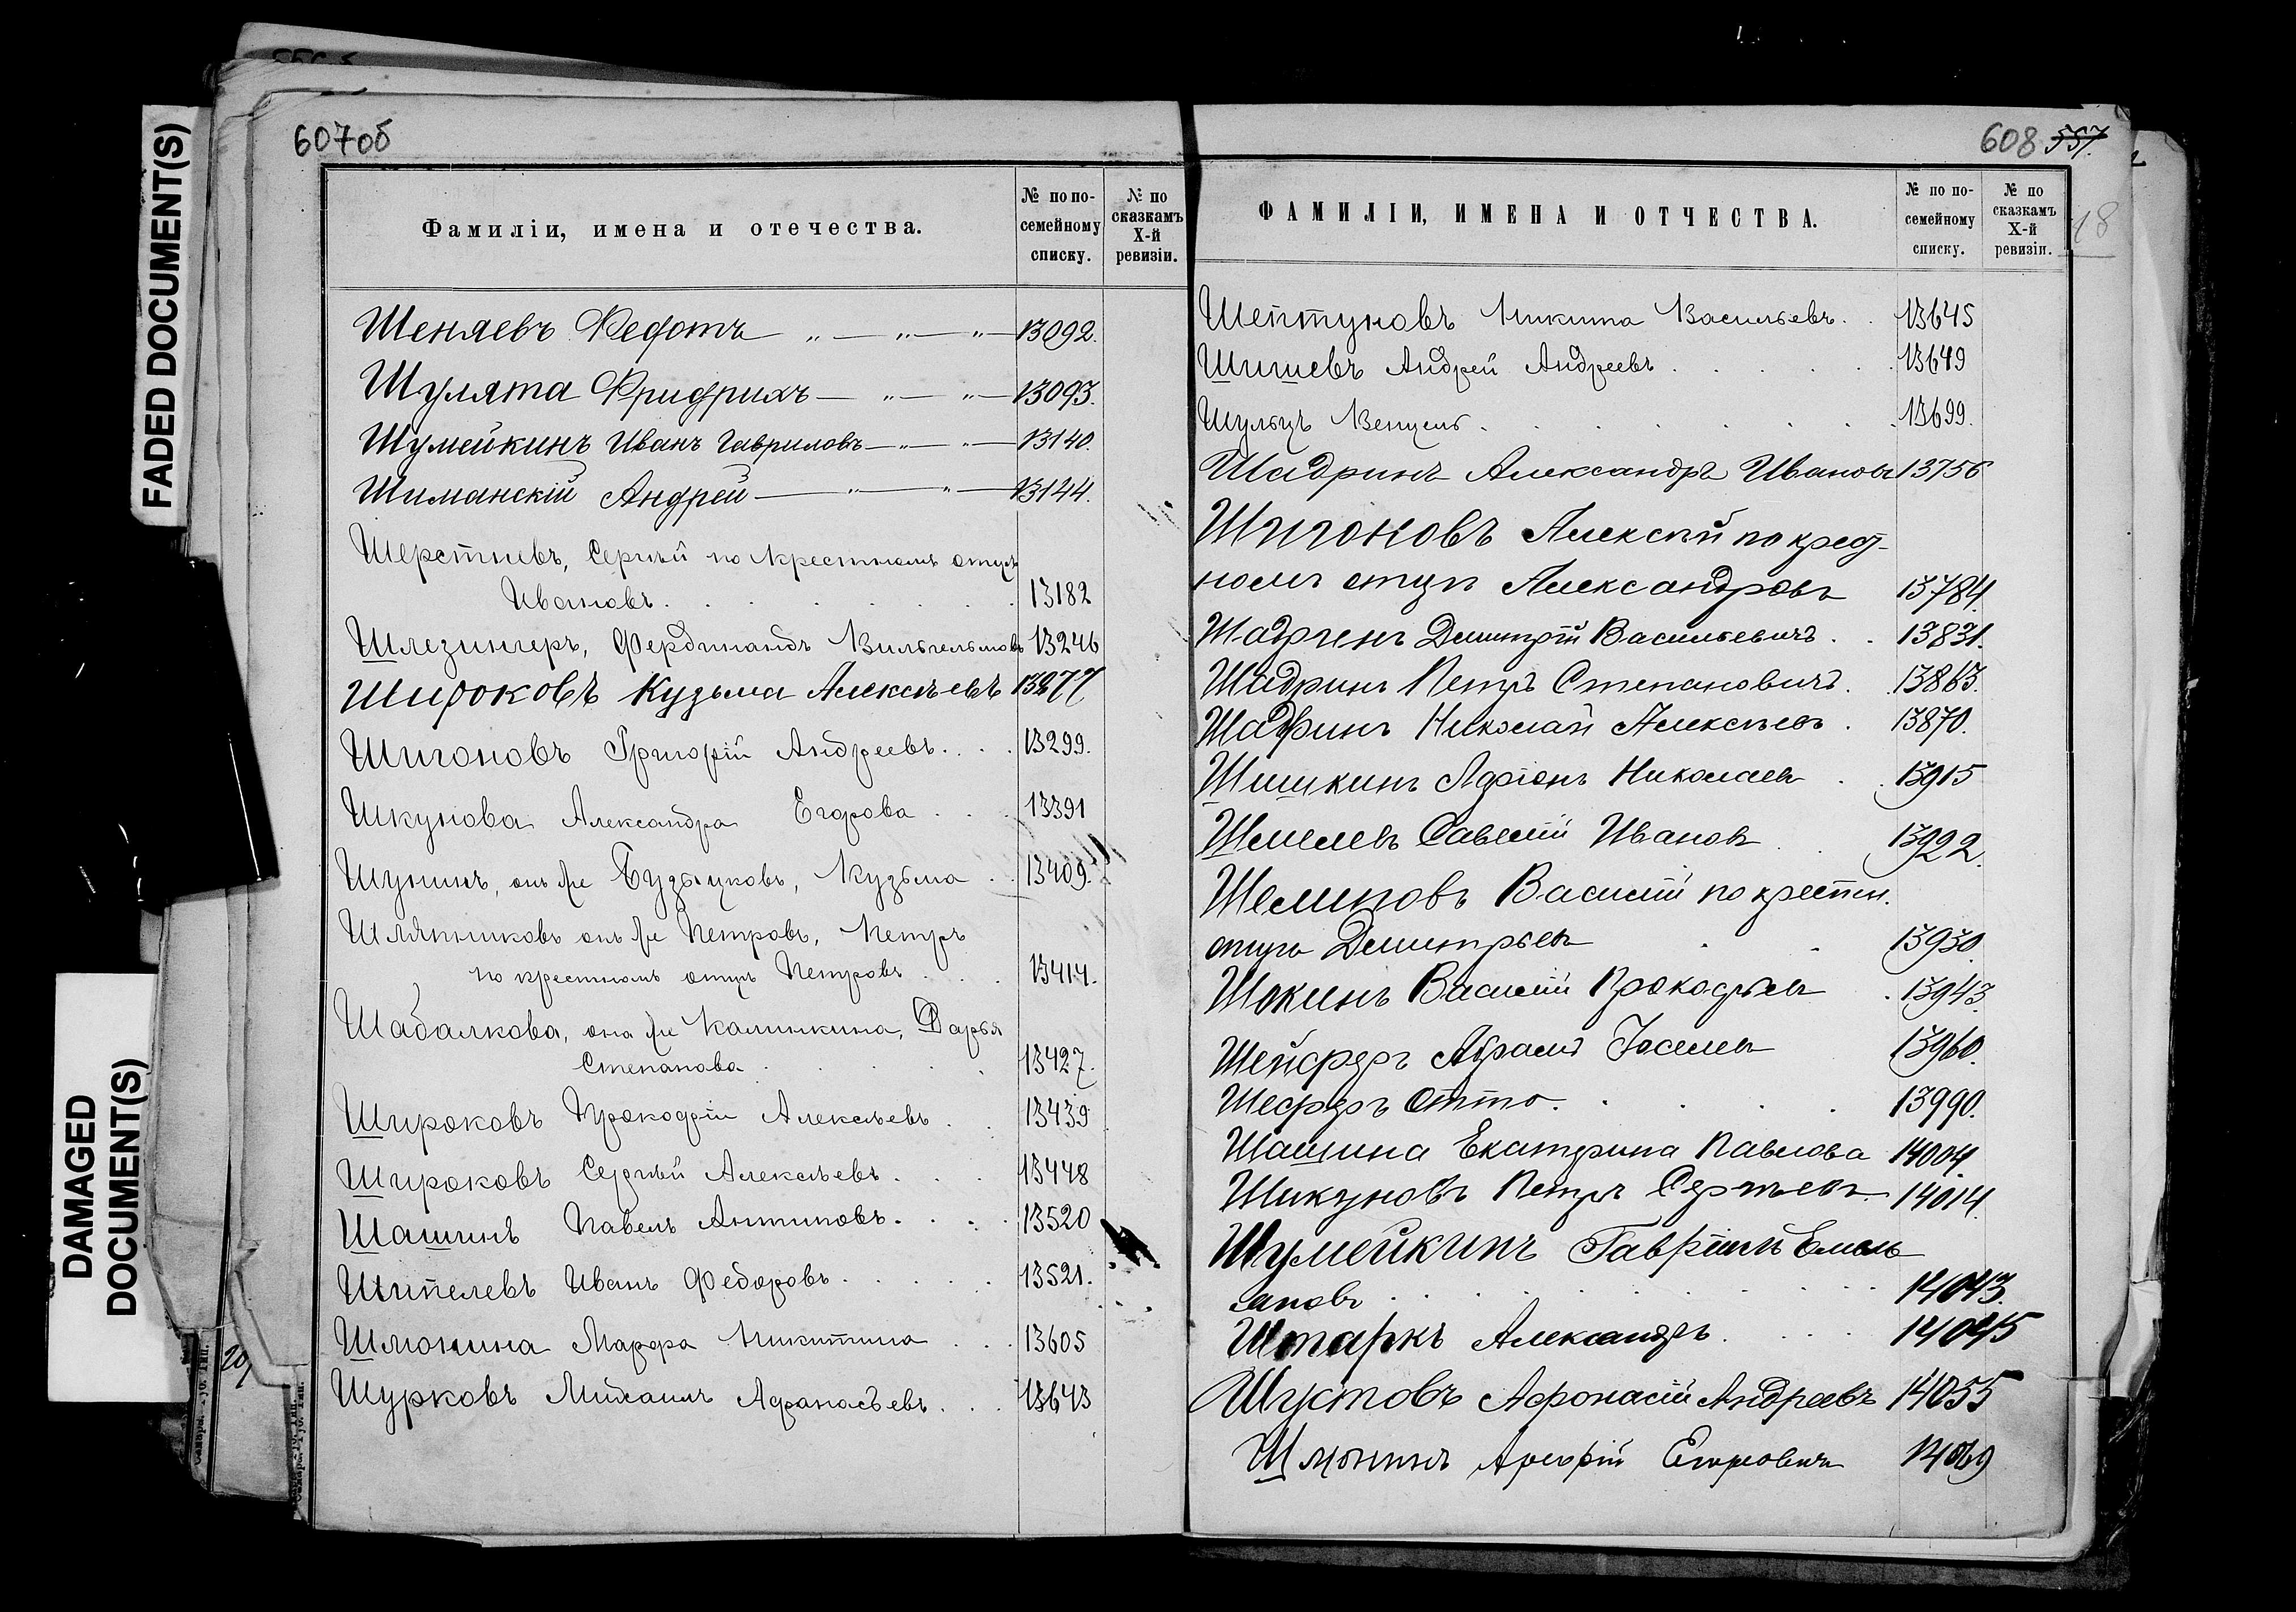 FADED DOCUMENT(S)
DAMAGED
DOCUMENT(S)
607об
Фамиліи, имена и отечества.
№ по по-
семейному
списку.
№ по
сказкамъ
X-й
ревизіи.
Шеняевъ Федотъ 13092.
Шулята Фридрихъ 13093.
Шумейкинъ Иванъ Гавриловъ 13140.
Шиманскій Андрей 13144.
Шерстневъ, Сергѣй по крестному отцу
Ивановъ 13182
Шлезингеръ, Фердинандъ Вильгельмовъ 13246
Широковъ Кузьма Алексѣевъ 13277
Шигоновъ Григорій Андреевъ 13299.
Шкунова Александра Егорова 13391
Шунинъ, онъ же Кузьма 13409.
Шляпниковъ онъ же Петровъ, Петръ
по крестному отцу Петровъ 13414.
Шабалкова, она же Калинкина, Дарья
Степанова 13427.
Широковъ Прокофій Алексѣевъ 13439
Широковъ Сергѣй Алексѣевъ 13448
Шашинъ Павелъ Антиповъ 13520
Шипелевъ Иванъ Федоровъ 13521.
Шмонина Марфа Никитина 13605
Шурковъ Михаилъ Афанасьевъ 13643
608 557.
18
ФАМИЛІИ, ИМЕНА И ОТЧЕСТВА.
№ по по-
семейному
списку.
№ по
сказкамъ
X-й
ревизіи.
Шептуновъ Никита Васильевъ 13645
Шишевъ Андрей Андреевъ 13649
Шульцъ Венцель 13699.
Шадринъ Александръ Ивановъ 13756
Шигоновъ Алексѣй по крест-
ному отцу Александровъ 13784.
Шадринъ Димитрій Васильевичъ 13831.
Шадринъ Петръ Степановичъ 13863.
Шадринъ Николай Алексѣевъ 13870.
Шишкинъ Адріонъ Николаевъ 13915
Шмелевъ Савелій Ивановъ 13922.
Шелиповъ Василій по крестн.
отцу Димитріевъ 13930.
Шокинъ Василій Прокофьевъ 13943.
Шейферъ Абрамъ Іоселевъ 13960.
Шеферъ Отто 13990.
Шашина Екатерина Павлова 14004.
Шикуновъ Петръ Сергѣевъ 14014.
Шумейкинъ Гавріилъ Емель
яновъ 14043.
Штаркъ Александръ 14045
Шустовъ Афонасій Андреевъ 14055
Шмонинъ Егоровичъ 14069